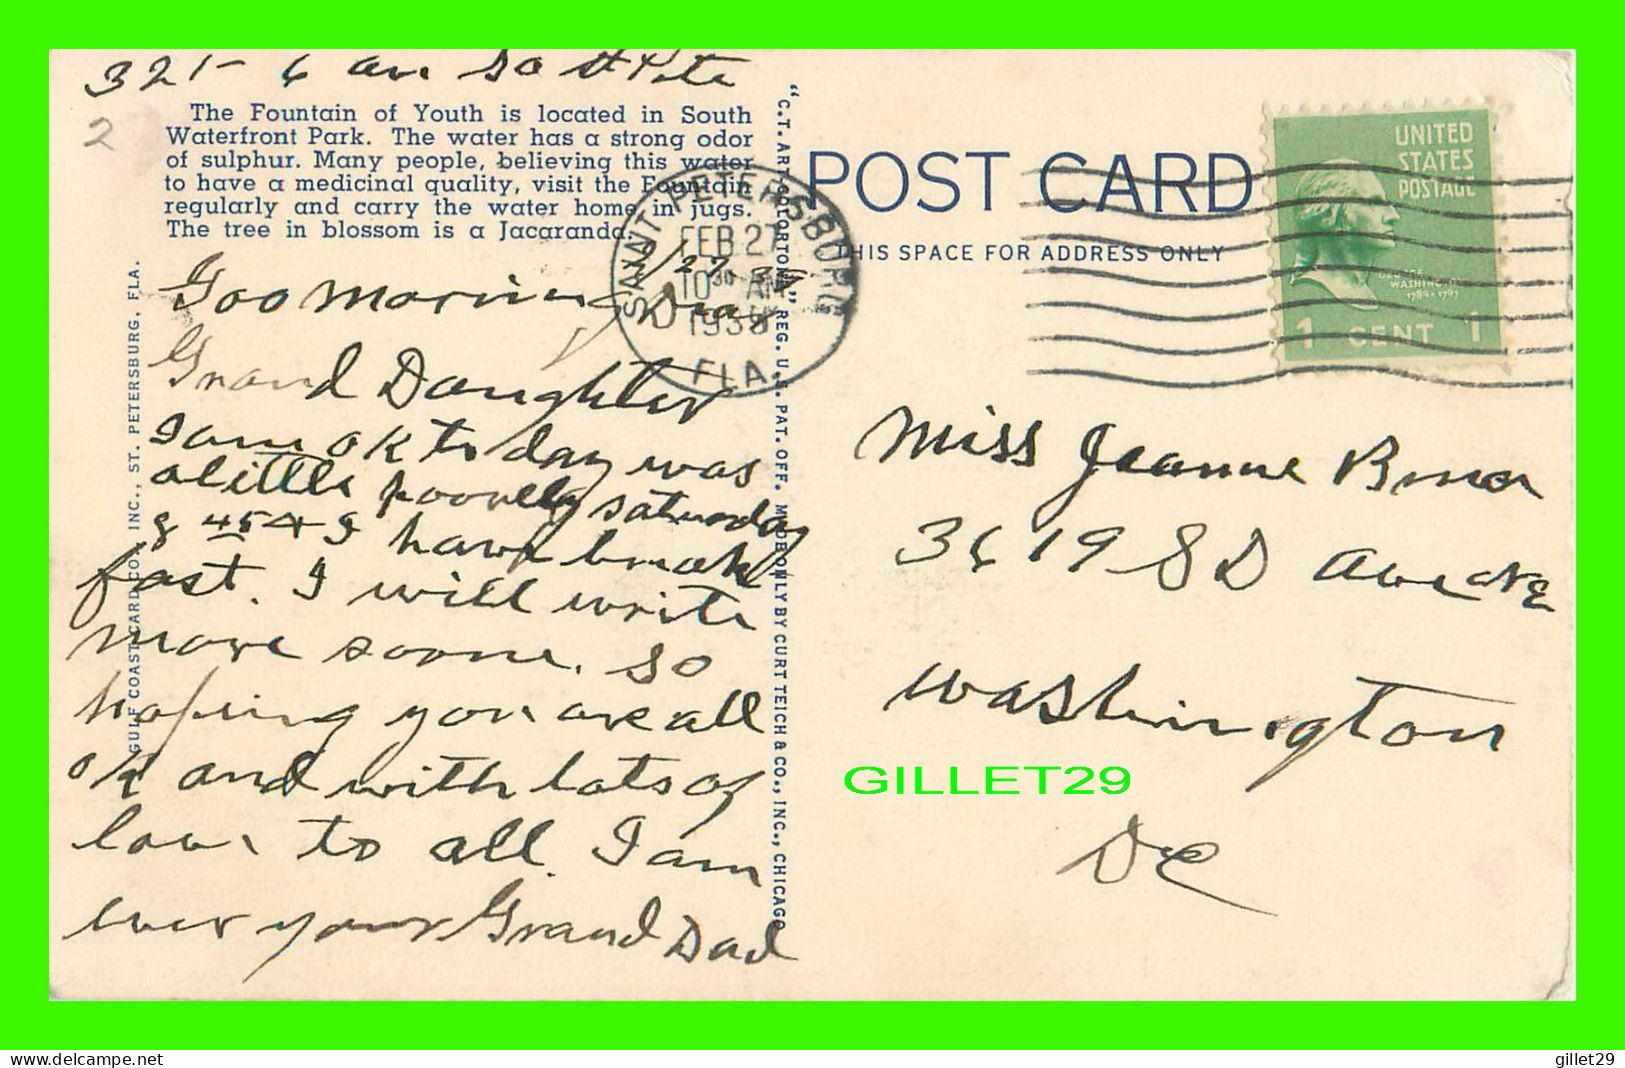 321 - 6 av So St Pete
2
The Fountain of Youth is located in South
Waterfront Park. The water has a strong odor
of sulphur. Many people, believing this water
to have a medicinal quality, visit the Fountain
regularly and carry the water home in jugs.
The tree in blossom is a Jacaranda.
Goo Morning Dear
Grand Daughter
I am ok to day was
a little poorly saturday
have break
fast. I will write
more soone. so
hoping you are all
ok and with lots of
love to all. I am
ever your Grand Dad
GULF COAST CARD CO., INC., ST. PETERSBURG, FLA.
"C.T. ART-COLORTONE" REG. U.S. PAT. OFF. MADE ONLY BY CURT TEICH & CO., INC., CHICAGO
SAINT PETERSBURG
FEB 27
10 30 AM
1939
FLA.
POST CARD
THIS SPACE FOR ADDRESS ONLY
UNITED
STATES
POSTAGE
GEORGE
WASHINGTON
1789-1797
1 CENT 1
Miss Jeanne
3619 Avenue
Washington
DC
GILLET29
www.delcampe.net
gillet29